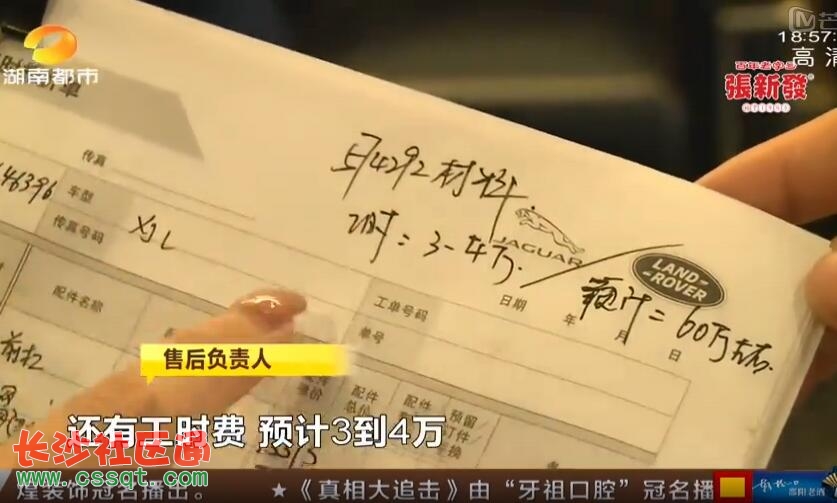 湖南都市
18:57
高清
百年老字号
張新發
传真
574292材料
46396
车型
XJL
工时:3-4万
JAGUAR
LAND-
-ROVER
传真号码
工单号码
日期
年 月 日
预计=60万左右
配件名称
单号
售后负责人
配件
总价
预留
订件
换
还有工时费 预计3到4万
长沙社区通
www.cssqt.com
煌装饰冠名播出。
★《真相大追击》由“牙祖口腔”冠名播